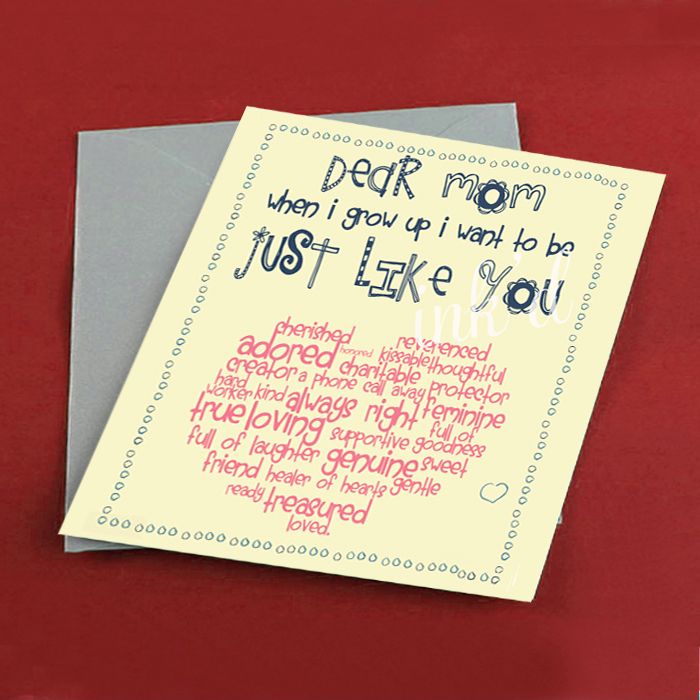 Dear mom
when i grow up i want to be
just like you
ink'd
cherished reverenced
adored honored kissable thoughtful
creator charitable protector
a phone call away
hard worker kind always right feminine
true loving supportive full of goodness
full of laughter genuine sweet
friend healer of hearts gentle
ready treasured
loved.